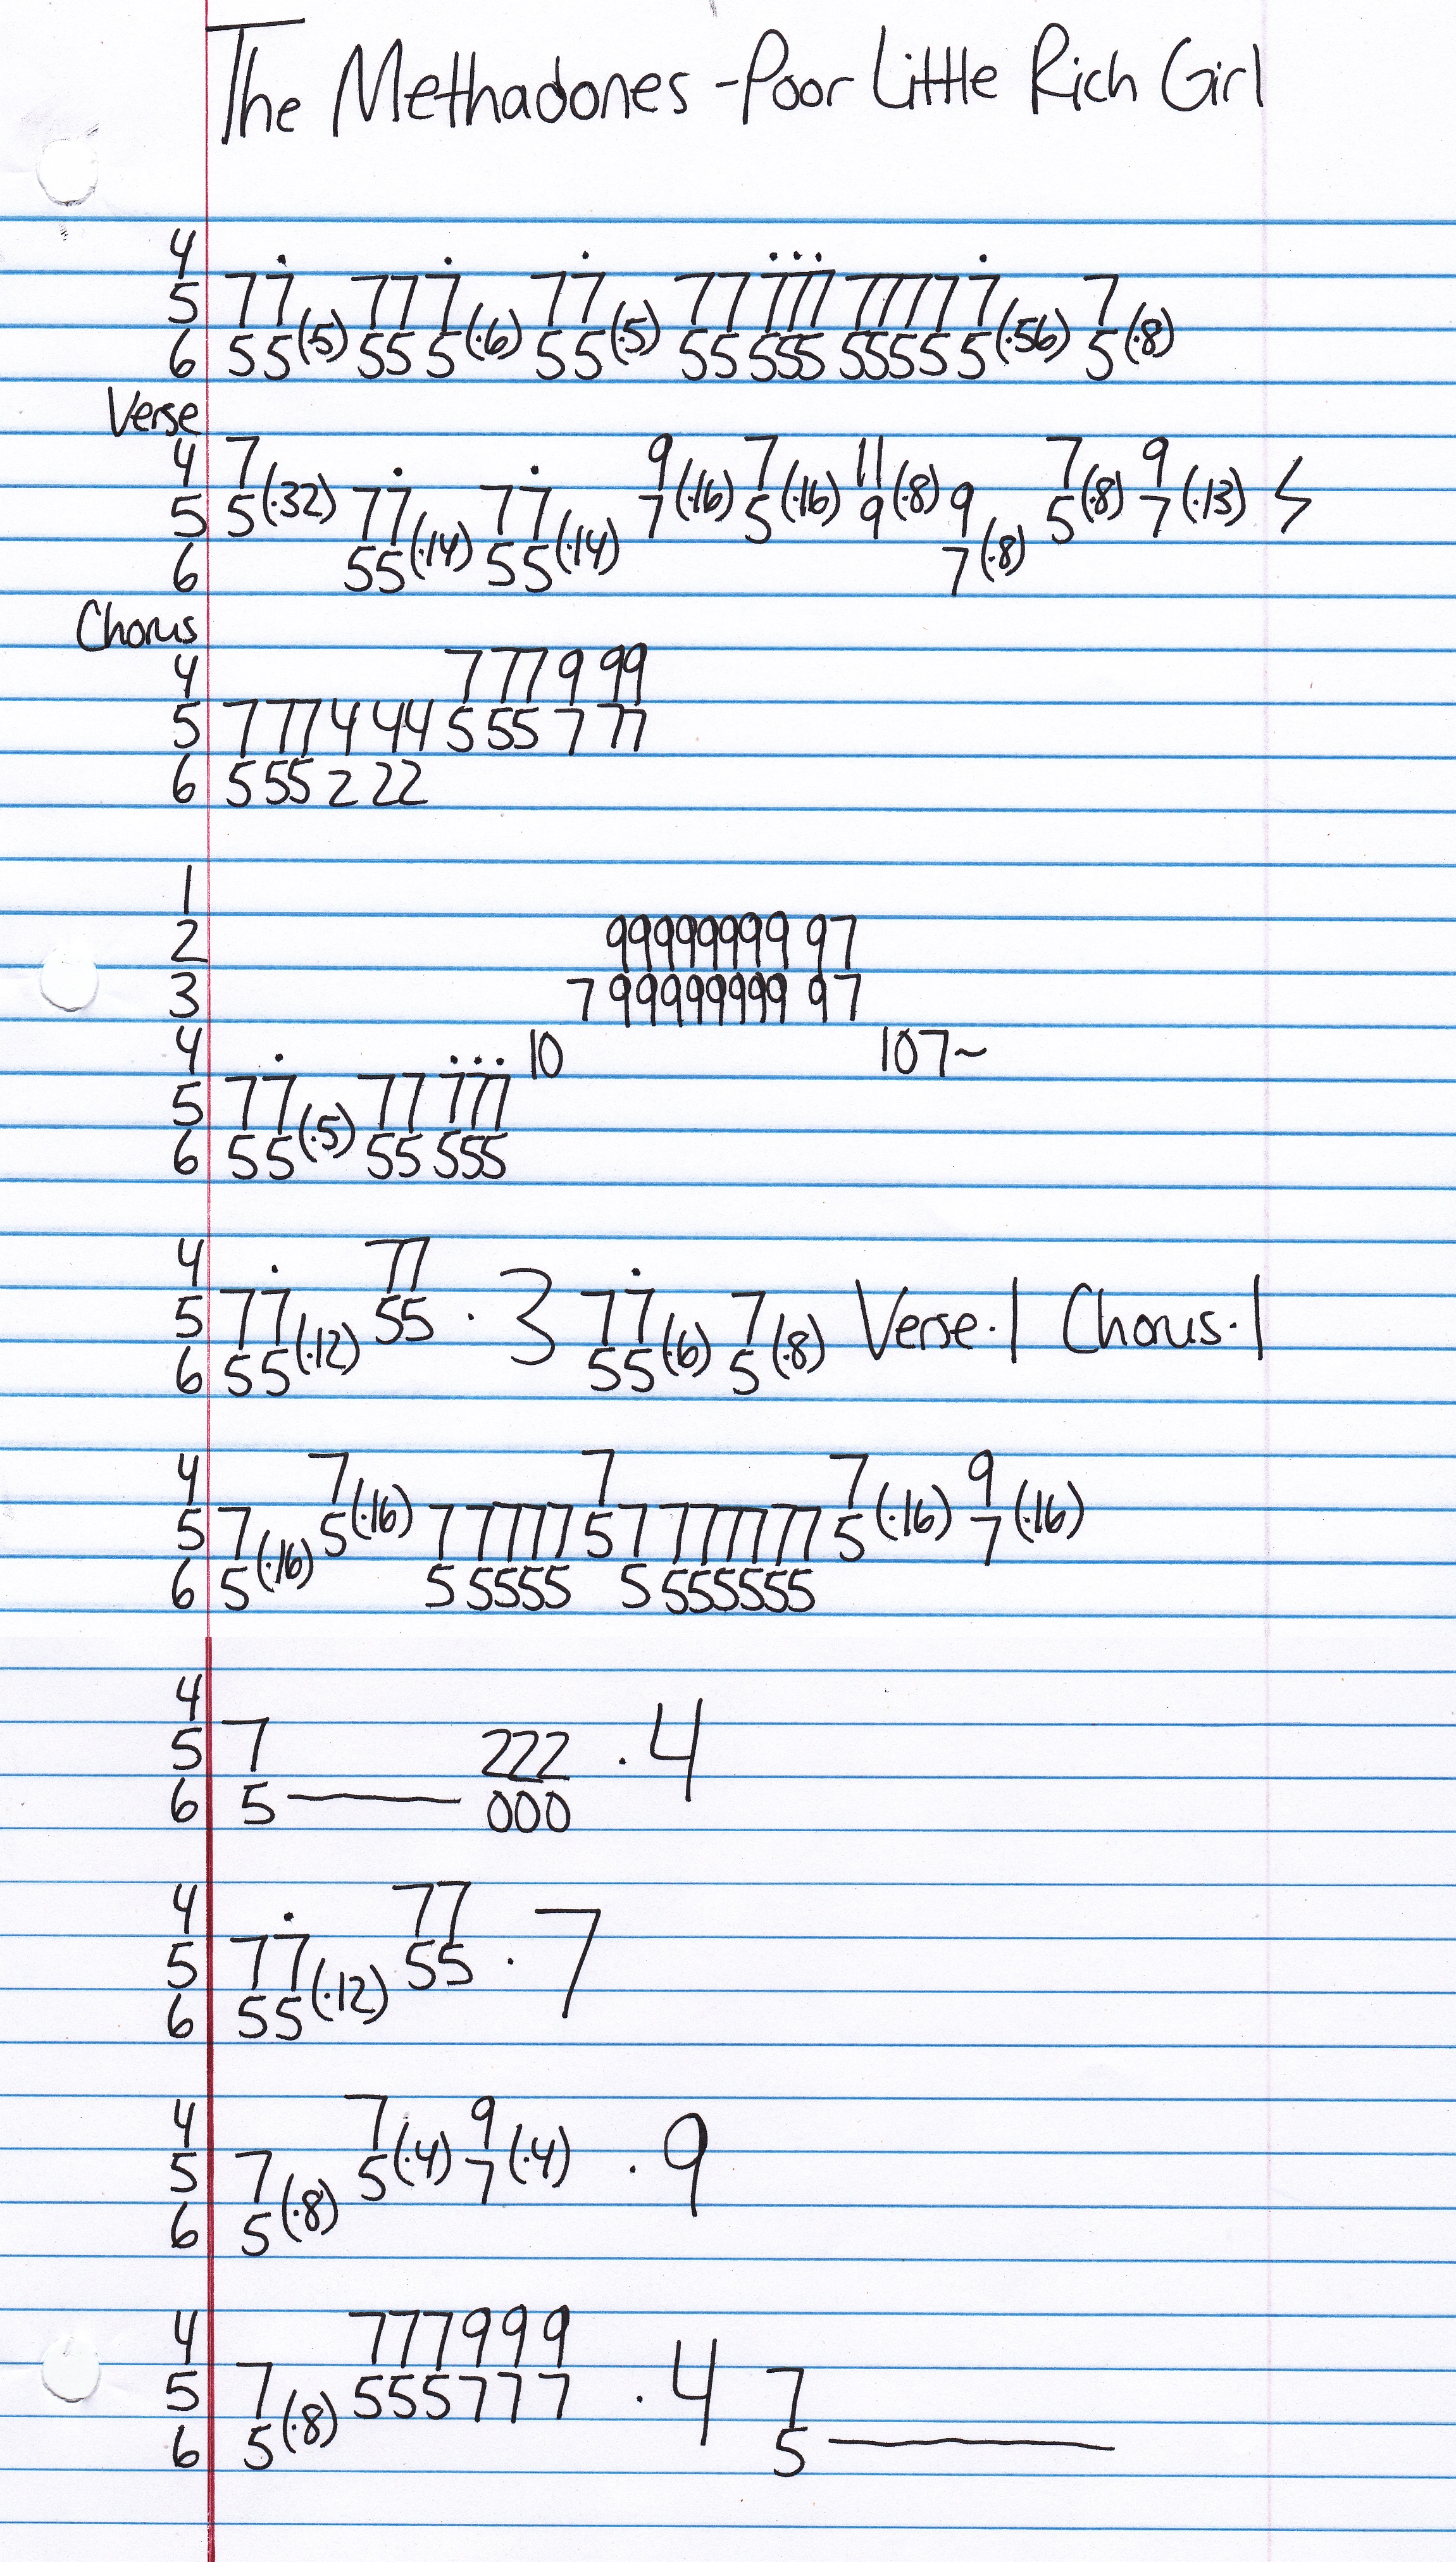 The Methadones - Poor Little Rich Girl
4
5 7 7̇ 7 7 7̇ 7 7̇ 7 7 7̇7̇7̇ 7 7 7 7 7̇ 7
6 5 5(·5) 5 5 5(·6) 5 5(·5) 5 5 5 5 5 5 5 5 5 5(·56) 5(·8)
Verse
4 7 9 7 11 7 9
5 5(·32) 7 7̇ 7 7̇ 7(·16) 5(·16) 9(·8) 9 5(·8) 7(·13) ϟ
6 5 5(·14) 5 5(·14) 7(·8)
Chorus
4 7 7 7 9 9 9
5 7 7 7 4 4 4 5 5 5 7 7 7
6 5 5 5 2 2 2
1
2 9 9 9 9 9 9 9 9 9 7
3 7 9 9 9 9 9 9 9 9 9 7
4 10 10 7~
5 7 7̇ 7 7 7̇7̇7̇
6 5 5(·5) 5 5 5 5 5
4 7 7
5 7 7̇ 5 5 · 3 7 7̇ 7 Verse·1 Chorus·1
6 5 5(·12) 5 5(·6) 5(·8)
4 7 7 7 9
5 7 5(·16) 7 7 7 7 7 5 7 7 7 7 7 7 7 5(·16) 7(·16)
6 5(·16) 5 5 5 5 5 5 5 5 5 5 5 5
4
5 7 2 2 2 · 4
6 5 —— 0 0 0
4 7 7
5 7 7̇ 5 5 · 7
6 5 5(·12)
4 7 9
5 7 5(·4) 7(·4) · 9
6 5(·8)
4 7 7 7 9 9 9
5 7 5 5 5 7 7 7 · 4 7
6 5(·8) 5 ——